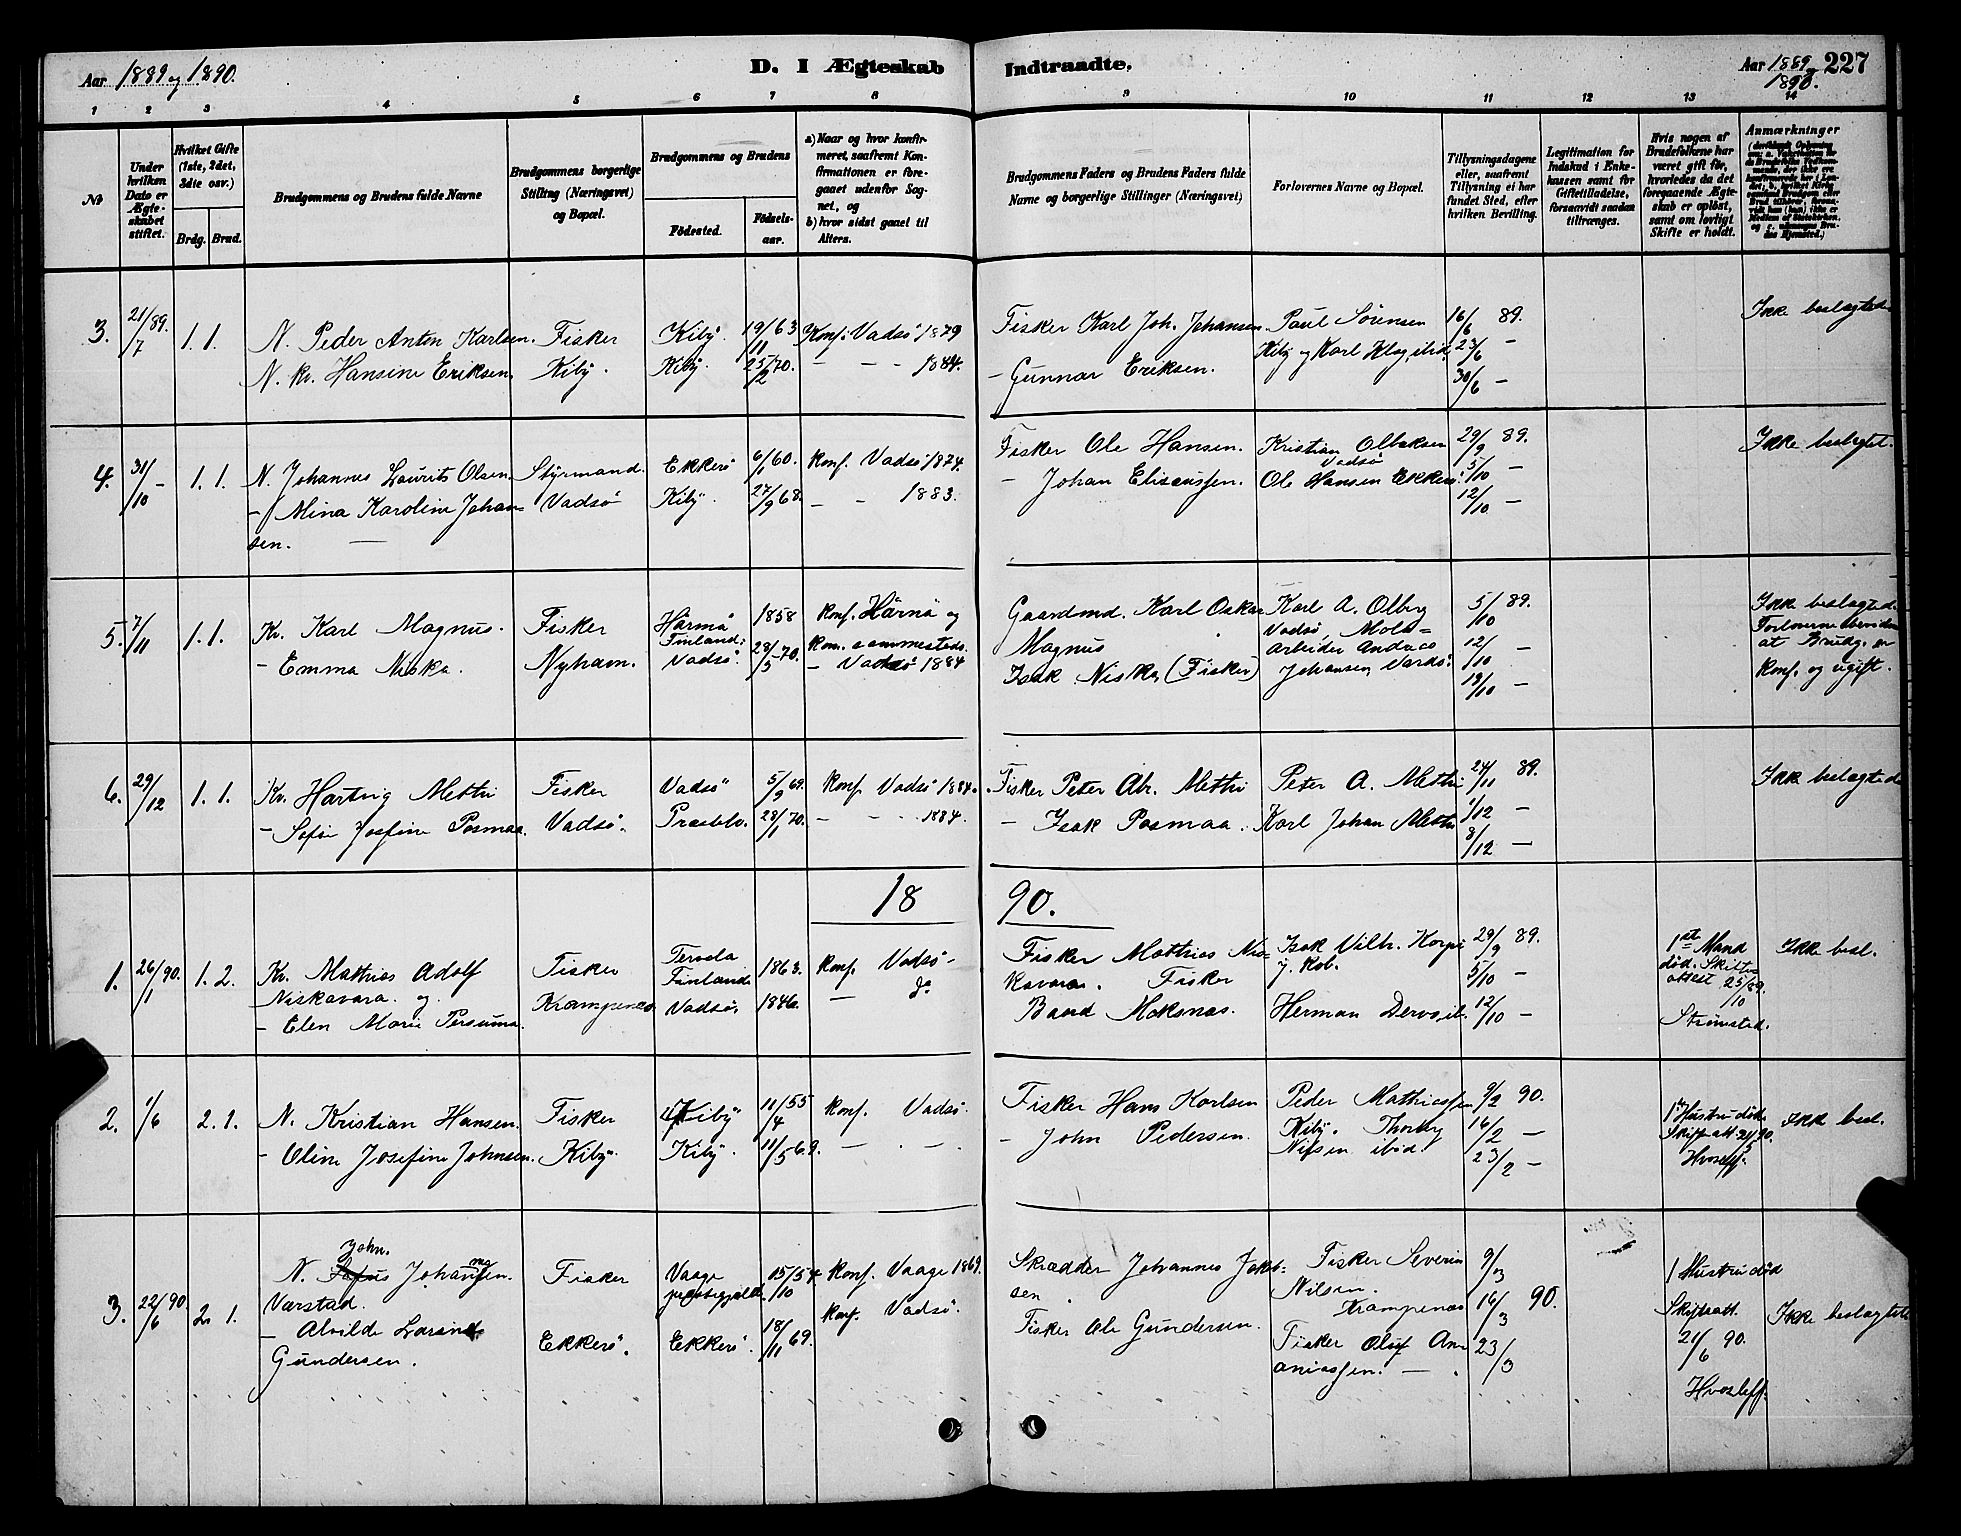 Aar 1889 og 1890.
D. I Ægteskab Indtraadte.
Aar 1889 og 1890. 227
1 2 3 4 5 6 7 8 9 10 11 12 13 14
No
Under hvilken Dato er Ægteskabet stiftet.
Hvilket Gifte (1ste, 2det, 3die osv.)
Brdg. Brud.
Brudgommens og Brudens fulde Navne
Brudgommens borgerlige Stilling (Næringsvei) og Bopæl.
Brudgommens og Brudens
Fødested.
Fødselsaar.
a) Naar og hvor konfirmeret, saafremt Konfirmationen er foregaaet udenfor Sognet, og
b) hvor sidst gaaet til Alters.
Brudgommens Faders og Brudens Faders fulde Navne og borgerlige Stillinger (Næringsvei)
Forlovernes Navne og Bopæl.
Tillysningsdagene eller, saafremt Tillysning ei har fundet Sted, efter hvilken Bevilling.
Legitimation for Indskud i Enkekassen samt for Giftetilladelse, forsaavidt saadan tiltrænges.
Hvis nogen af Brudefolkene har været gift før, hvorledes da det foregaaende Ægteskab er opløst, samt om lovligt Skifte er holdt.
Anmærkninger
3. 21/7 89. 1. 1.
N. Peder Anton Karlsen.
N. kv. Hansine Eriksen.
Fisker
Kiby.
Kiby. 19/11 63
Kiby. 25/2 70.
Konf. Vadsö 1879
— — — 1884.
Fisker Karl Joh. Johansen
— Gunnar Eriksen.
Paul Sörensen
Kiby og Karl ibid.
16/6 89.
23/6 —
30/6 —
Ikke beslagtede
4. 31/10 — 1. 1.
N. Johannes Laurits Olsen.
— Mina Karoline Johan=
sen. —
Styrmand.
Vadsö
Ekkerö 6/1 60.
Kiby. 27/9 68.
Konf. Vadsö 1874.
— — 1883.
Fisker Ole Hansen.
— Johan Eliseussen.
Kristian Olbeksen
Vadsö
Ole Hansen Ekkerö.
29/9 89.
5/10 —
12/10 —
Ikke beslagtet.
5. 7/11 1. 1.
Kv. Karl Magnus.
— Emma Niska.
Fisker
Nyhavn.
Härmä
Finland: 1858
Vadsö. 28/5 70.
Konf. Härnä og
Kom. sammesteds.
— Vadsö 1884
Gaardmd. Karl Oskar
Magnus
Isak Niska (Fisker)
Karl A. Olberg
Vadsö,
arbeider Andreas
Johansen Vardö.
5/10 89.
12/10 —
19/10 —
Ikke beslagtede
Forloverne bevidner
at Brudg. er
konf. og ugift.
6. 29/12 1. 1.
Kv. Hartvig Mettri
— Sofie Josefine Posmaa.
Fisker
Vadsö.
Vadsö 5/9 69.
Præstelv. 28/1 70.
Konf. Vadsö 1884.
— — — 1884.
Fisker Peter Abr. Mettri
— Isak Posmaa.
Peter A. Mettri
Karl Johan Mettri
24/11 89.
1/12 —
8/12 —
Ikke beslagtede
1890.
1. 26/1 90. 1. 2.
Kv. Mathias Adolf
Niskavara. og
— Elen Marie Persuma.
Fisker
Krampenes
Tervola
Finland 1863.
Vadsö. 1846.
Konf. Vadsö.
— do
Fisker Mathias Nis=
kavara. Fisker
Baard Moksnas.
Isak Vilh. Korpi
Herman
29/9 89.
5/10 —
12/10 —
1ste Mand
död. Skifte
attest 25/10 89.
Strömsted.
Ikke besl.
2. 1/6 2. 1.
N. Kristian Hansen.
— Oline Josefine Johnsen.
Fisker
Kiby.
Kiby 11/4 55
Kiby. 11/5 69.
Konf. Vadsö.
— — —
Fisker Hans Karlsen
— John Pedersen.
Peder Mathiassen
Kiby. Thorby
Nilsen ibid.
9/2 90.
16/2 —
23/2 —
1ste Hustru död.
Skifteatt. 90.
Hvoslef.
Ikke besl.
3. 22/6 90. 2. 1.
John.
N. Sofus Johannesen.
Varstad.
— Alvilde Larsine
Gundersen.
Fisker
Ekkerö.
Vaage
præstegjeld. 15/10 54
Ekkerö. 18/11 69.
Konf. Vaage 1869.
Konf. Vadsö.
Skrædder Johannes Jakob=
sen.
Fisker Ole Gundersen.
Fisker Severin
Nilsen.
Krampenæs
Fisker Oluf An
aniassen. —
9/3
16/3 90.
23/3
1 Hustru död
Skifteatt.
21/6 90.
Hvoslef.
Ikke beslagtede